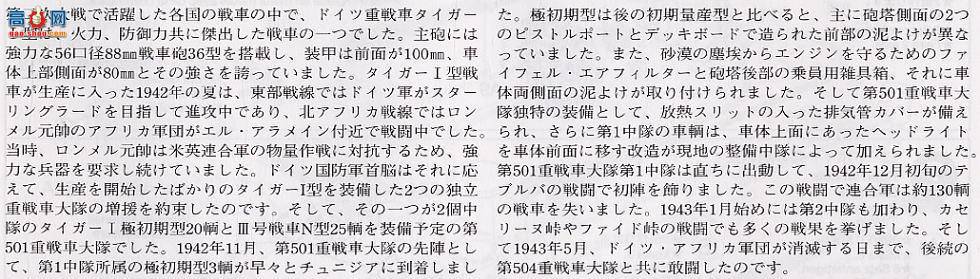 大戦で活躍した各国の戦車の中で、ドイツ重戦車タイガー
火力、防御力共に傑出した戦車の一つでした。主砲には
強力な56口径88㎜戦車砲36型を搭載し、装甲は前面が100㎜、車
体上部側面が80㎜とその強さを誇っていました。タイガーⅠ型戦
車が生産に入った1942年の夏は、東部戦線ではドイツ軍がスター
リングラードを目指して進攻中であり、北アフリカ戦線ではロン
メル元帥のアフリカ軍団がエル・アラメイン付近で戦闘中でした。
当時、ロンメル元帥は米英連合軍の物量作戦に対抗するため、強
力な兵器を要求し続けていました。ドイツ国防軍首脳はそれに応
えて、生産を開始したばかりのタイガーⅠ型を装備した2つの独立
重戦車大隊の増援を約束したのです。そして、その一つが2個中
隊のタイガーⅠ極初期型20輌とⅢ号戦車N型25輌を装備予定の第
501重戦車大隊でした。1942年11月、第501重戦車大隊の先陣とし
て、第1中隊所属の極初期型3輌が早々とチュニジアに到着しまし
た。極初期型は後の初期量産型と比べると、主に砲塔側面の2つ
のピストルポートとデッキボードで造られた前部の泥よけが異な
っていました。また、砂漠の塵埃からエンジンを守るためのファ
イフェル・エアフィルターと砲塔後部の乗員用雑具箱、それに車
体両側面の泥よけが取り付けられました。そして第501重戦車大
隊独特の装備として、放熱スリットの入った排気管カバーが備え
られ、さらに第1中隊の車輌は、車体上面にあったヘッドライト
を車体前面に移す改造が現地の整備中隊によって加えられました。
第501重戦車大隊第1中隊は直ちに出動して、1942年12月初旬のテ
ブルバの戦闘で初陣を飾りました。この戦闘で連合軍は約130輌
の戦車を失いました。1943年1月始めには第2中隊も加わり、カセ
リーヌ峠やファイド峠の戦闘でも多くの戦果を挙げました。そし
て1943年5月、ドイツ・アフリカ軍団が消滅する日まで、後続の
第504重戦車大隊と共に敢闘したのです。